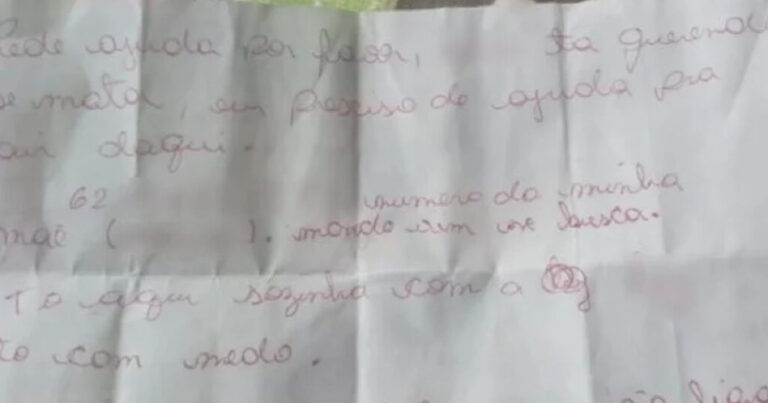 Pede ajuda por favor, ta querendo
me mata, eu preciso de ajuda pra
sair daqui.
62 numero da minha
mãe ( ). manda vim me busca.
To aqui sozinha com a
to com medo.